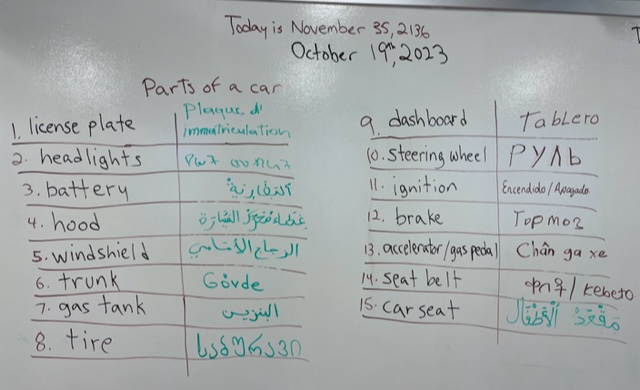 Today is November 35, 2136
October 19th, 2023
Parts of a car
1. license plate Plaque d'immatriculation
2. headlights
3. battery البطارية
4. hood غطاء محرك السيارة
5. windshield الزجاج الأمامي
6. trunk Gövde
7. gas tank البنزين
8. tire საბურავი
9. dashboard Tablero
10. Steering wheel РУЛЬ
11. ignition Encendido/Apagado
12. brake Тормоз
13. accelerator/gas pedal Chân ga xe
14. seat belt ቀበቶ/kebeto
15. car seat مَقْعَدُ الْأَطْفَال